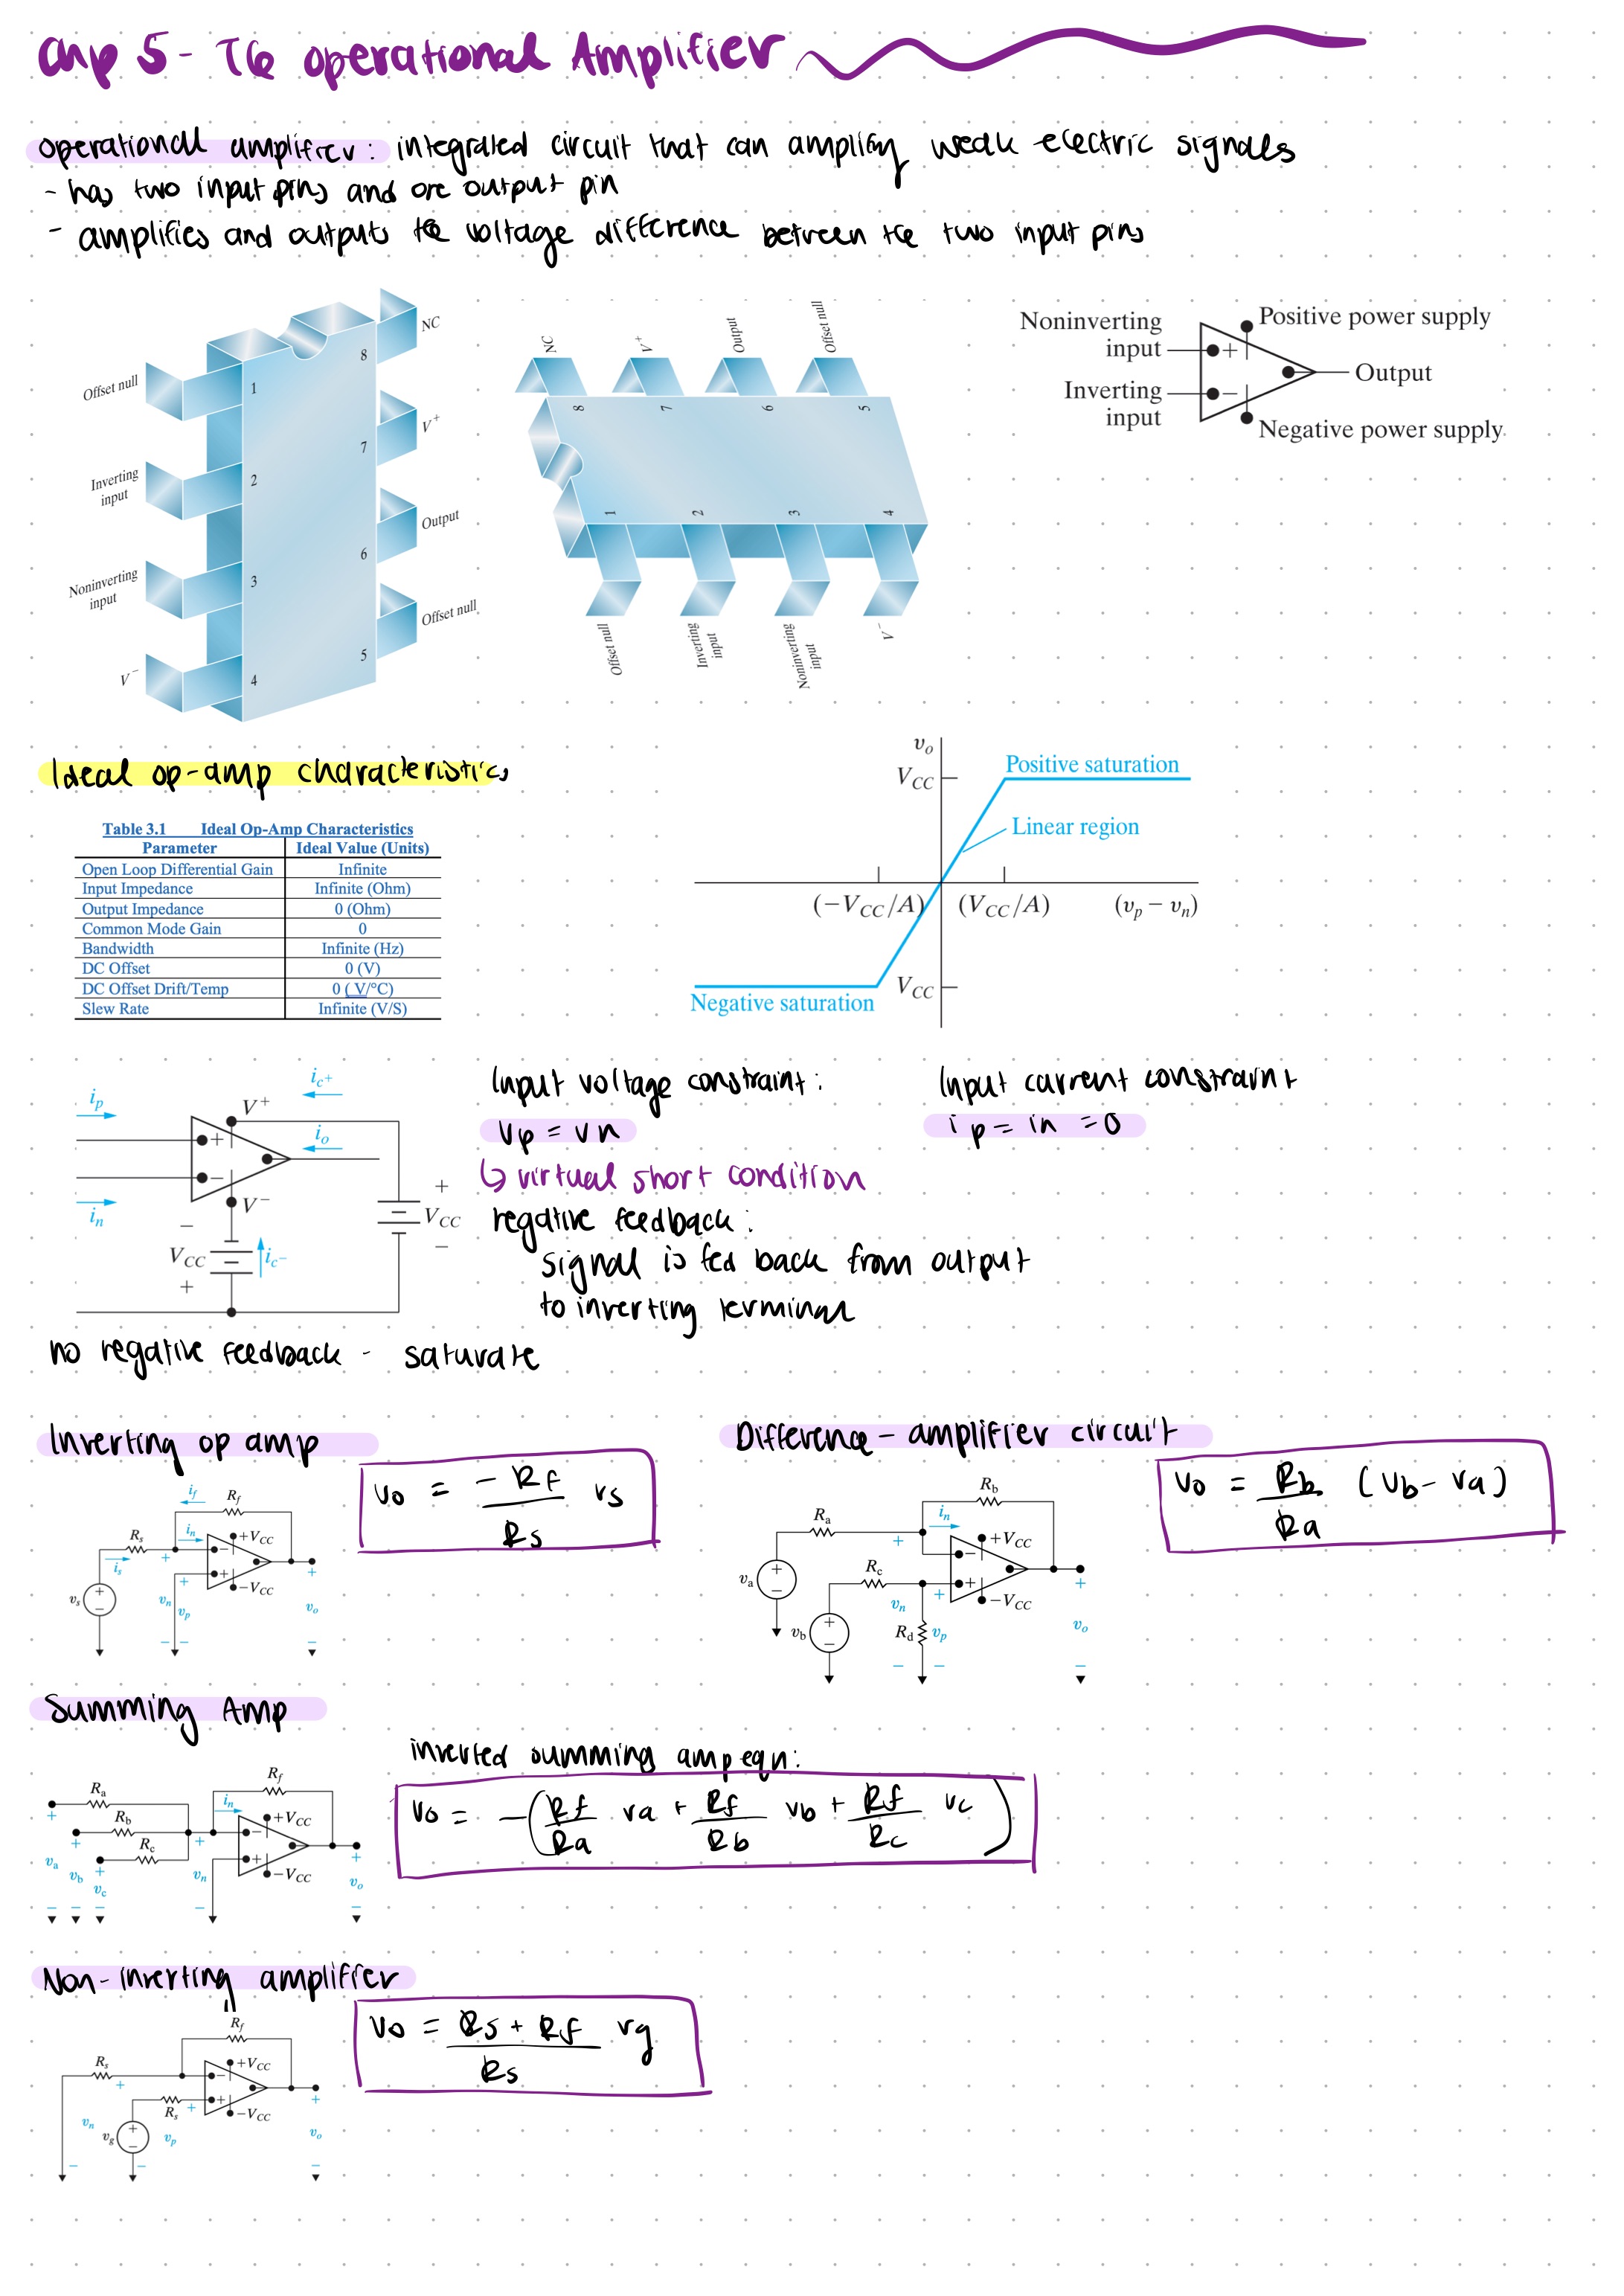 Chp 5 - The operational Amplifier
operational amplifier: integrated circuit that can amplify weak electric signals
- has two input pins and one output pin
- amplifies and outputs the voltage difference between the two input pins
Offset null
Inverting input
Noninverting input
V⁻
1
2
3
4
8
7
6
5
NC
V⁺
Output
Offset null
NC
V⁺
Output
Offset null
8
7
6
5
1
2
3
4
Offset null
Inverting input
Noninverting input
V⁻
Noninverting input
Inverting input
+
−
Positive power supply
Output
Negative power supply
Ideal op-amp characteristics
Table 3.1 Ideal Op-Amp Characteristics
Parameter Ideal Value (Units)
Open Loop Differential Gain Infinite
Input Impedance Infinite (Ohm)
Output Impedance 0 (Ohm)
Common Mode Gain 0
Bandwidth Infinite (Hz)
DC Offset 0 (V)
DC Offset Drift/Temp 0 ( V/°C)
Slew Rate Infinite (V/S)
v_o
V_CC
Positive saturation
Linear region
(−V_CC/A) (V_CC/A) (v_p − v_n)
V_CC
Negative saturation
i_p
i_n
V⁺
V⁻
+
−
i_c+
i_o
+
V_CC
−
−
V_CC
+
i_c−
Input voltage constraint:
vp = vn
↳ virtual short condition
negative feedback:
signal is fed back from output
to inverting terminal
Input current constraint
ip = in = 0
no negative feedback - saturate
Inverting op amp
i_f R_f
R_s i_n +V_CC
i_s + − +
v_s + − v_n v_p −V_CC + v_o −
vo = -Rf/Rs vs
Difference - amplifier circuit
R_b
R_a i_n +V_CC
v_a + − R_c −V_CC
v_b + − R_d v_n v_p + v_o −
vo = Rb/Ra (vb - va)
Summing Amp
R_f
R_a i_n
R_b +V_CC
R_c −V_CC
v_a v_b v_c v_n v_o
inverted summing amp eqn:
vo = -(Rf/Ra va + Rf/Rb vb + Rf/Rc vc)
Non-inverting amplifier
R_f
R_s +V_CC
R_s −V_CC
v_n v_g v_p v_o
vo = Rs + Rf/Rs vg